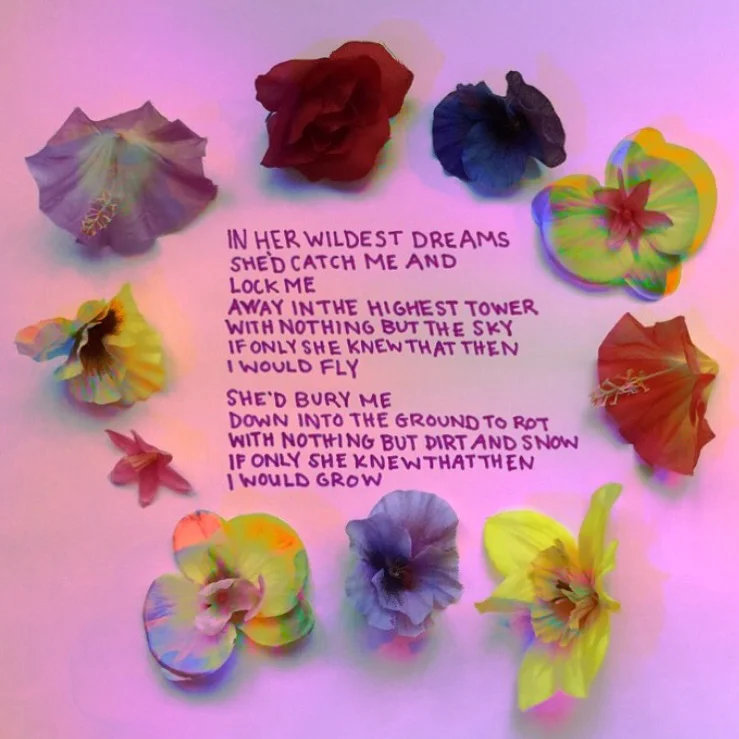 IN HER WILDEST DREAMS
SHE'D CATCH ME AND
LOCK ME
AWAY IN THE HIGHEST TOWER
WITH NOTHING BUT THE SKY
IF ONLY SHE KNEW THAT THEN
I WOULD FLY
SHE'D BURY ME
DOWN INTO THE GROUND TO ROT
WITH NOTHING BUT DIRT AND SNOW
IF ONLY SHE KNEW THAT THEN
I WOULD GROW